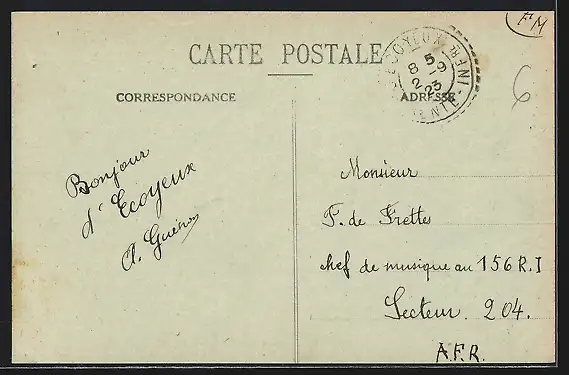 FM
CARTE POSTALE
ECOYEUX
8 5
2 -9
23
6
CORRESPONDANCE
ADRESSE
Bonjour
d'Ecoyeux
A.
Monsieur
de Frettes
chef de musique au 156 R.I
Secteur 204.
A.F.R.